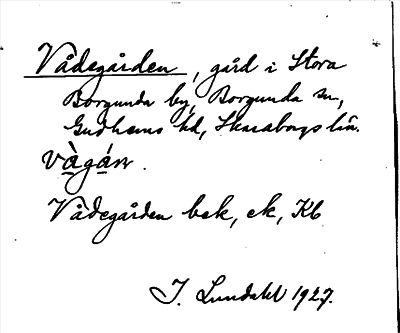 Vådegården, gård i Stora
Borgunda by, Borgunda sn,
Gudhems hd, Skaraborgs län.
vàgán.
Vådegården bek, ek, Kb
I. Lundahl 1927.